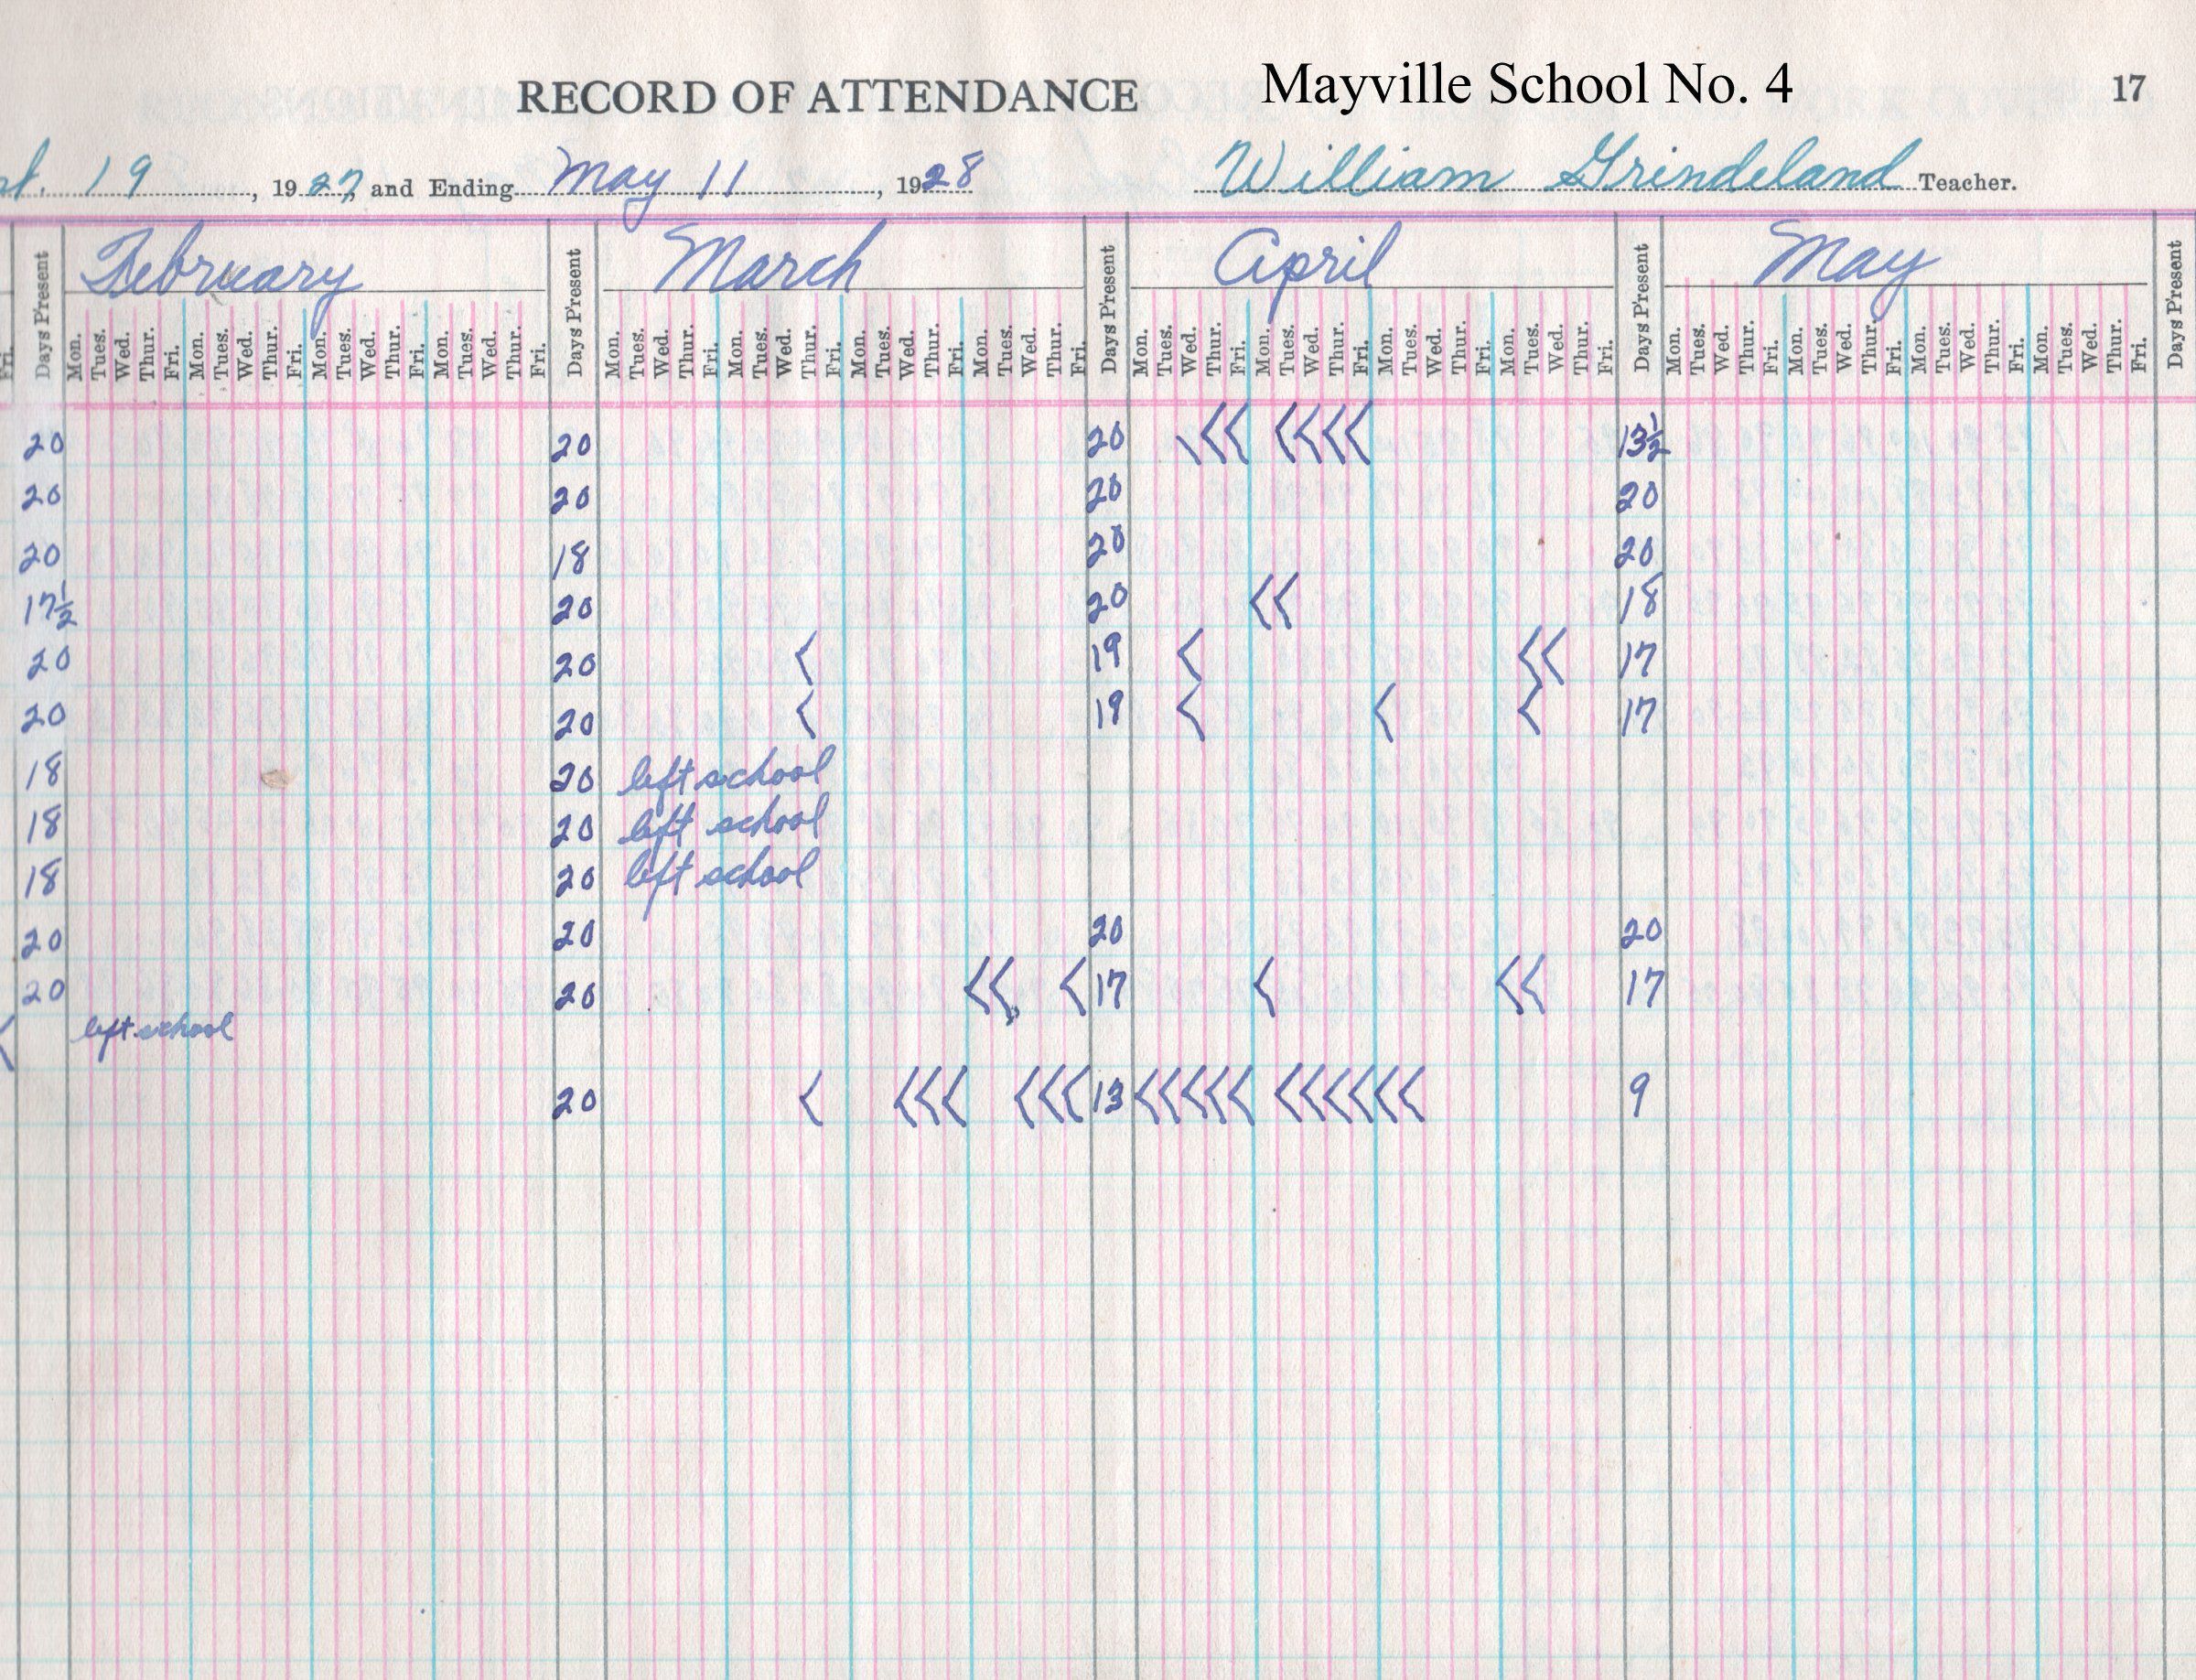 RECORD OF ATTENDANCE Mayville School No. 4 17
19, 1927, and Ending May 11, 1928 William Grindeland Teacher.
Days Present February Days Present March Days Present April Days Present May Days Present
Fri. Mon. Tues. Wed. Thur. Fri. Mon. Tues. Wed. Thur. Fri. Mon. Tues. Wed. Thur. Fri. Mon. Tues. Wed. Thur. Fri. Mon. Tues. Wed. Thur. Fri. Mon. Tues. Wed. Thur. Fri. Mon. Tues. Wed. Thur. Fri. Mon. Tues. Wed. Thur. Fri. Mon. Tues. Wed. Thur. Fri. Mon. Tues. Wed. Thur. Fri. Mon. Tues. Wed. Thur. Fri. Mon. Tues. Wed. Thur. Fri. Mon. Tues. Wed. Thur. Fri. Mon. Tues. Wed. Thur. Fri. Mon. Tues. Wed. Thur. Fri. Mon. Tues. Wed. Thur. Fri.
20 20 20 \<< <<<< 13½
20 20 20 20
20 18 20 20
17½ 20 20 << 18
20 20 < 19 < << 17
20 20 < 19 < < < 17
18 20 left school
18 20 left school
18 20 left school
20 20 20 20
20 20 << < 17 < << 17
< left school
20 < <<< <<< 13 <<<<< <<<<<< 9